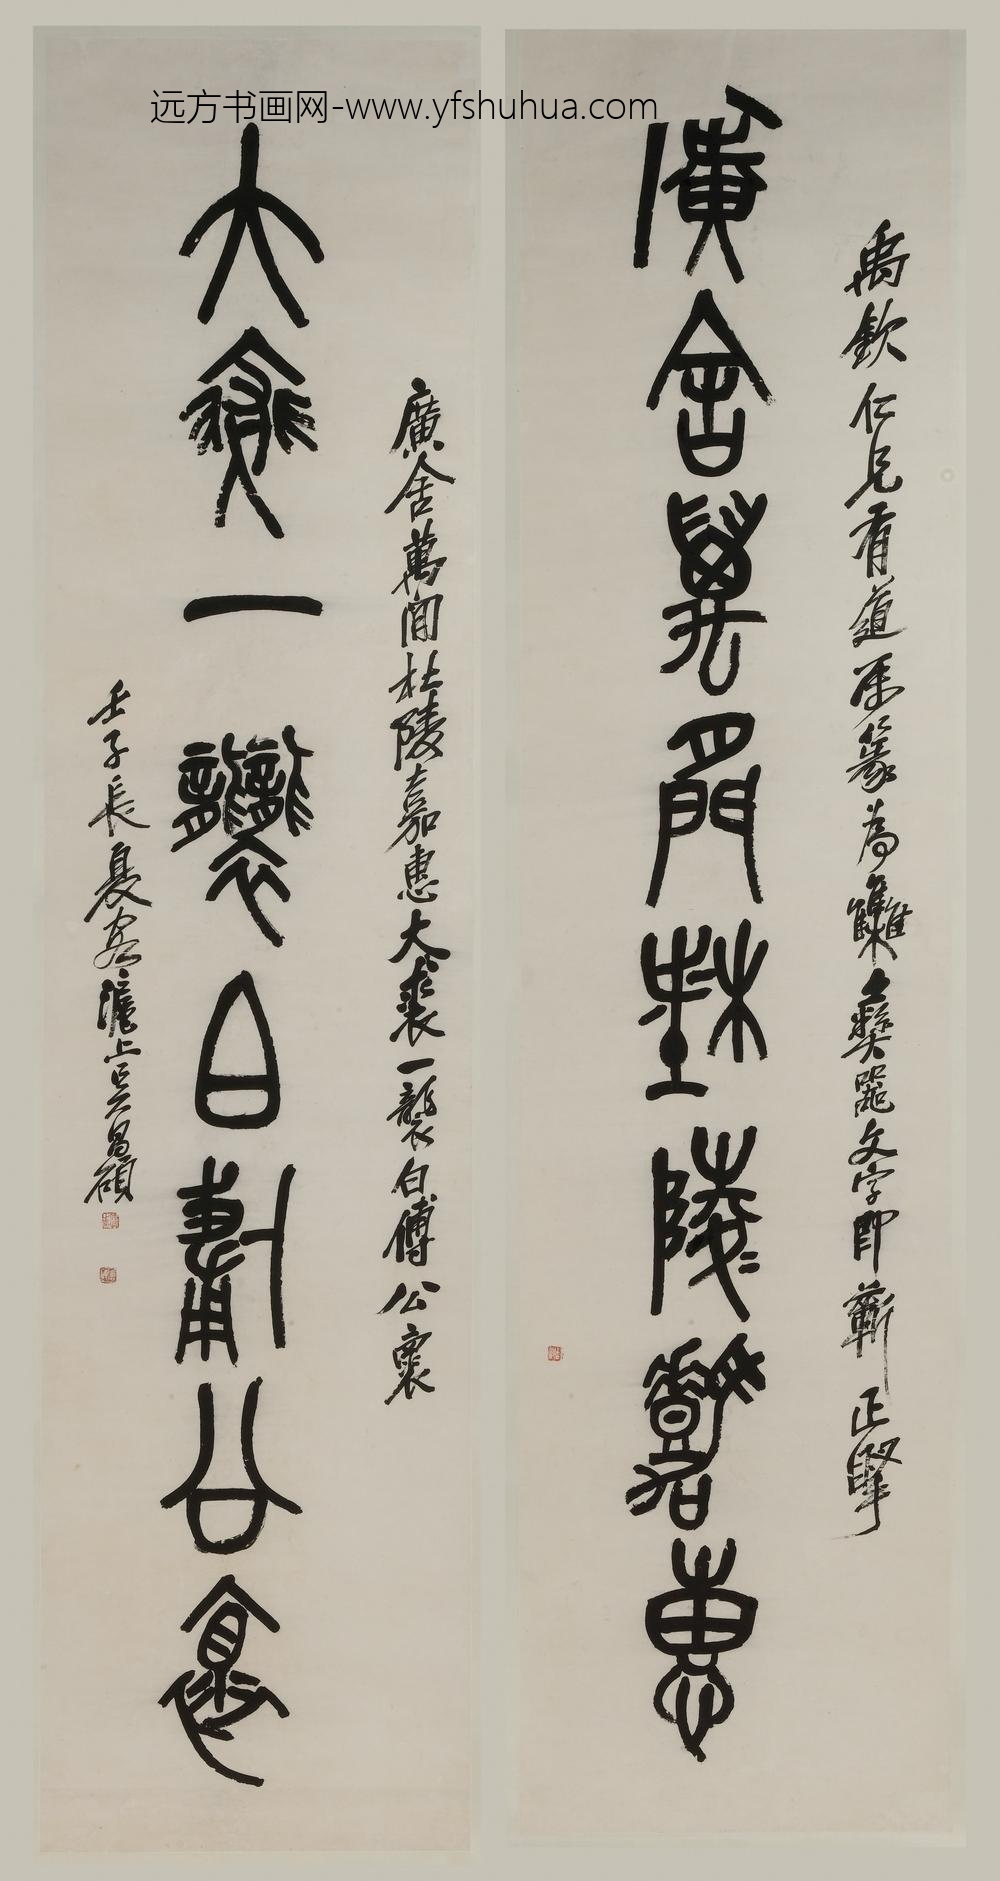 远方书画网-www.yfshuhua.com
禹欽仁兄有道屬篆為集彝器文字即蘄正擘
廣舍萬間杜陵嘉惠
廣舍萬間杜陵嘉惠大裘一襲白傅公裹
大裘一襲白傅公
壬子長夏客滬上吳昌碩